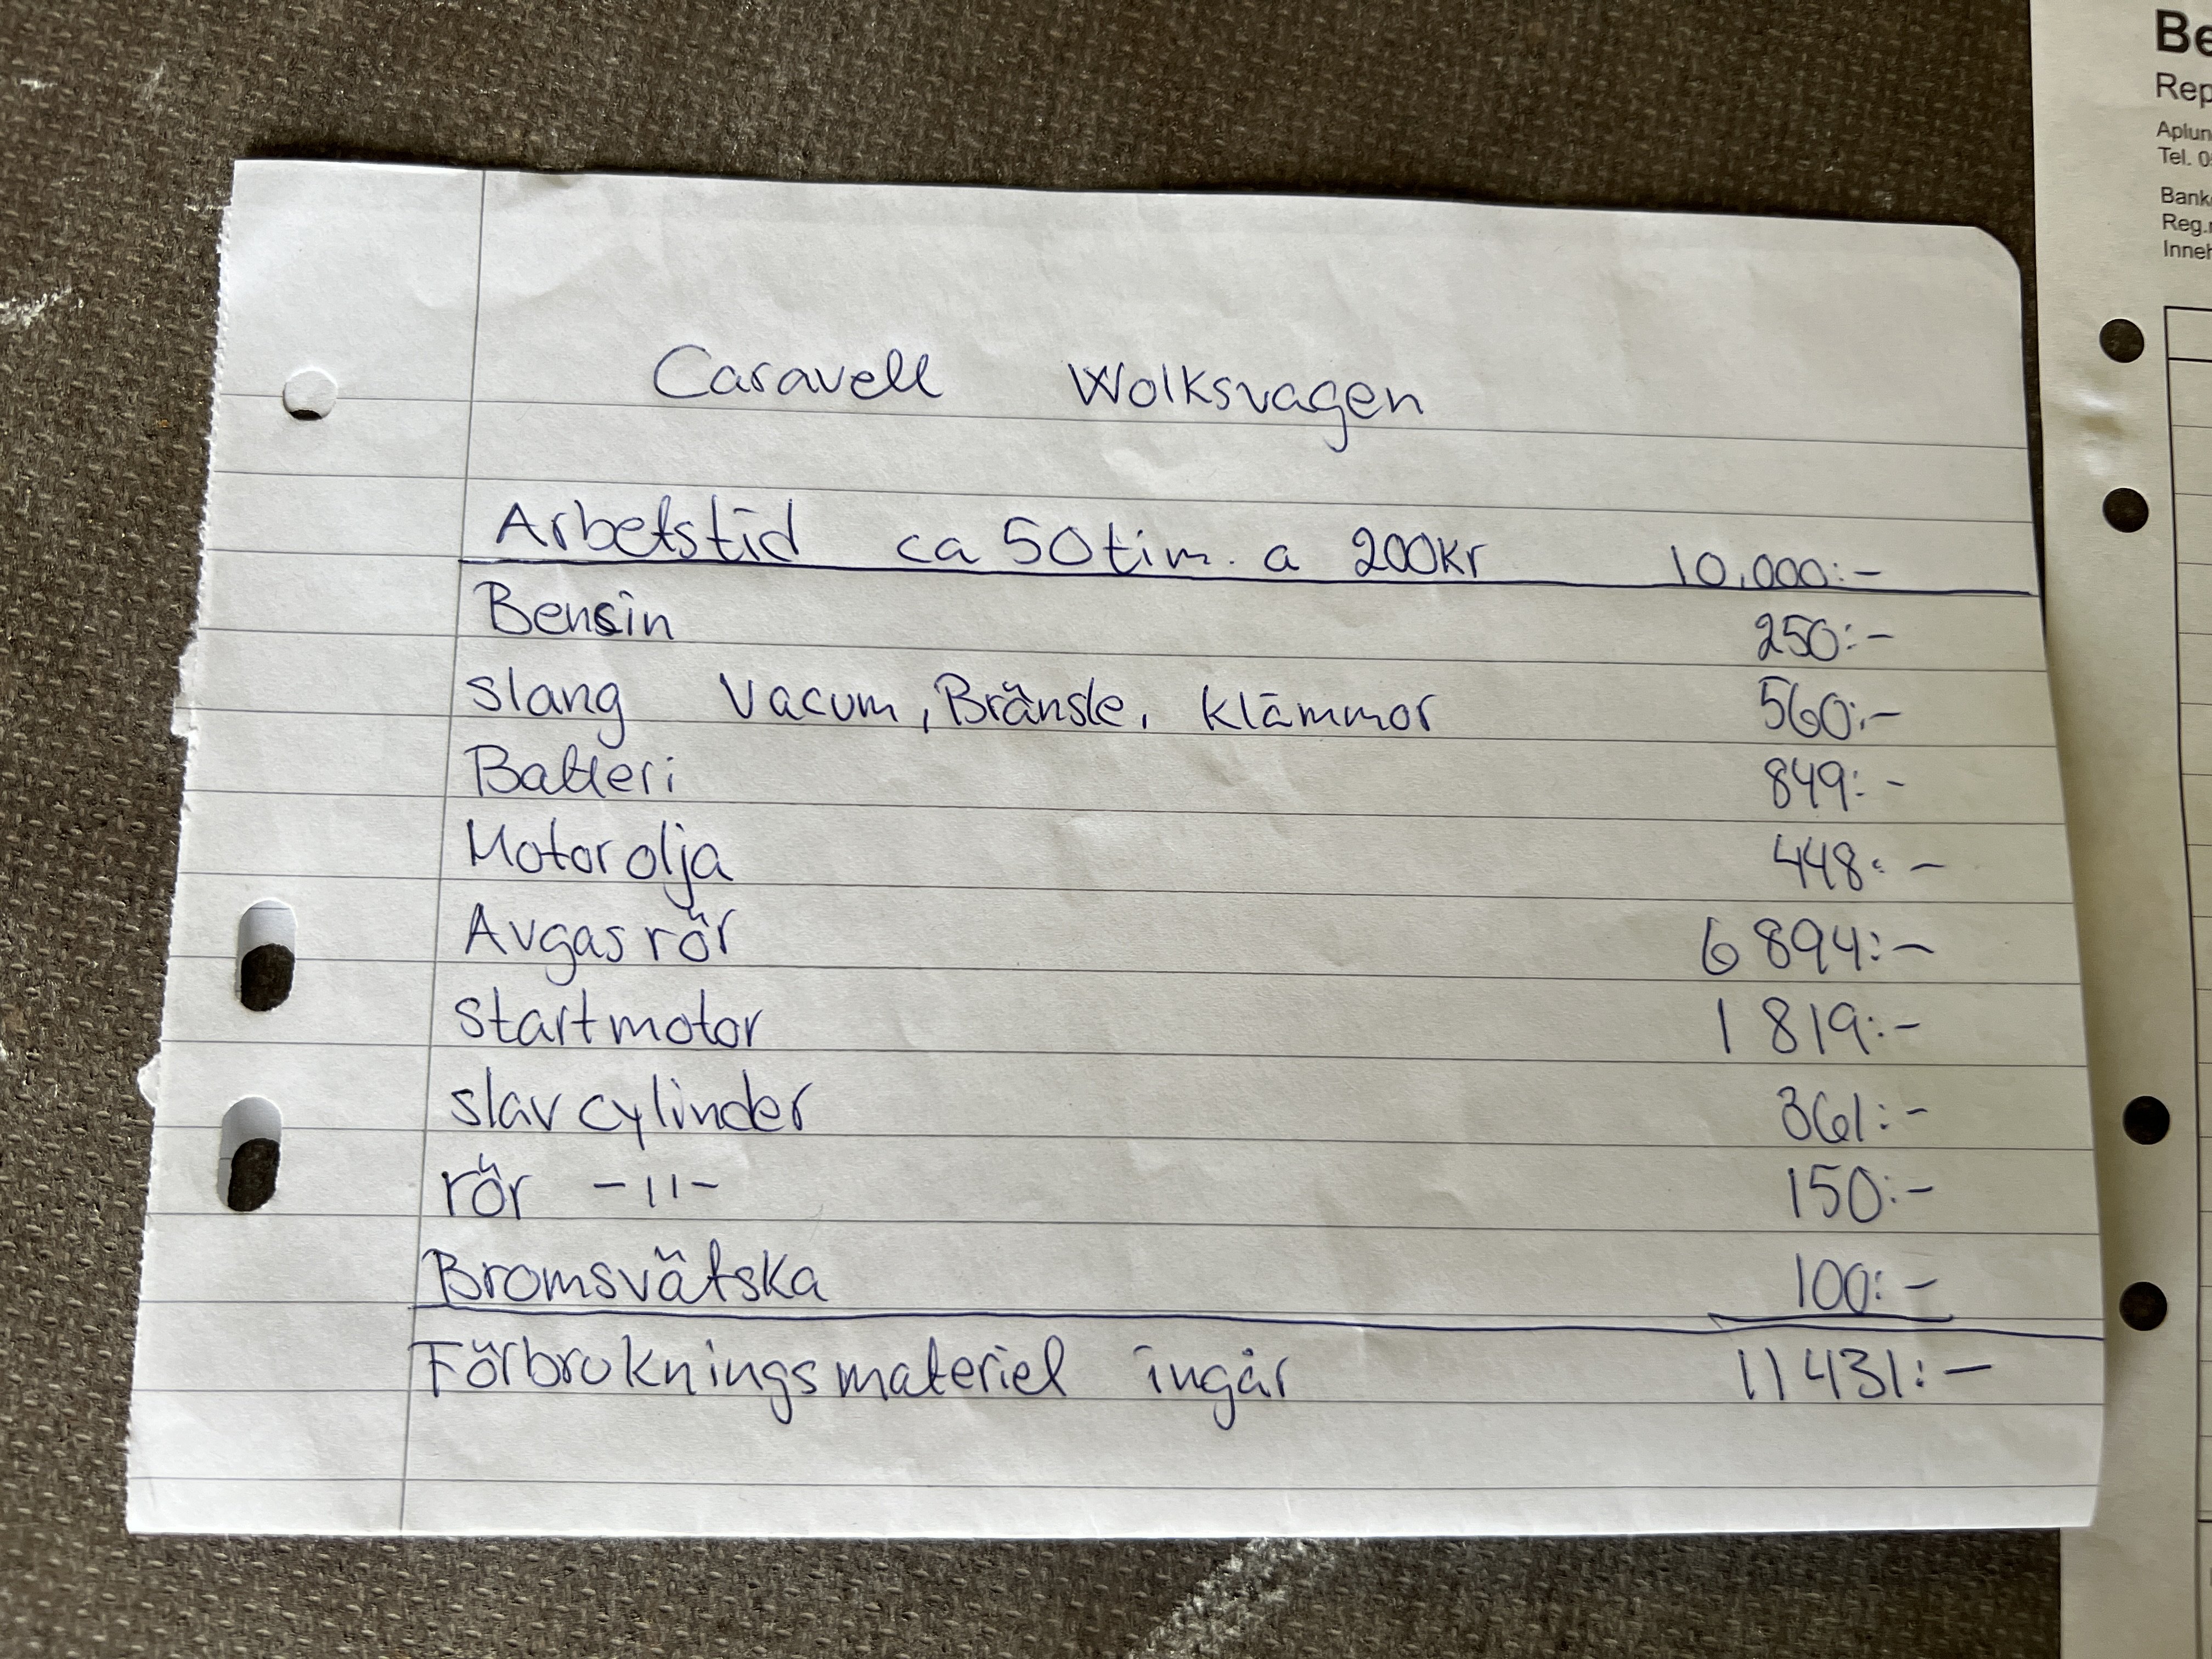 Caravell Wolksvagen
Arbetstid ca 50 tim. a 200kr 10.000:-
Bensin 250:-
slang Vacum, Bränsle, klämmor 560:-
Batteri 849:-
Motor olja 448:-
Avgas rör 6 894:-
startmotor 1 819:-
slav cylinder 361:-
rör -11- 150:-
Bromsvätska 100:-
Förbrukningsmateriel ingår 11 431:-
Be
Rep
Aplun
Tel. 0
Bank
Reg.
Inneh